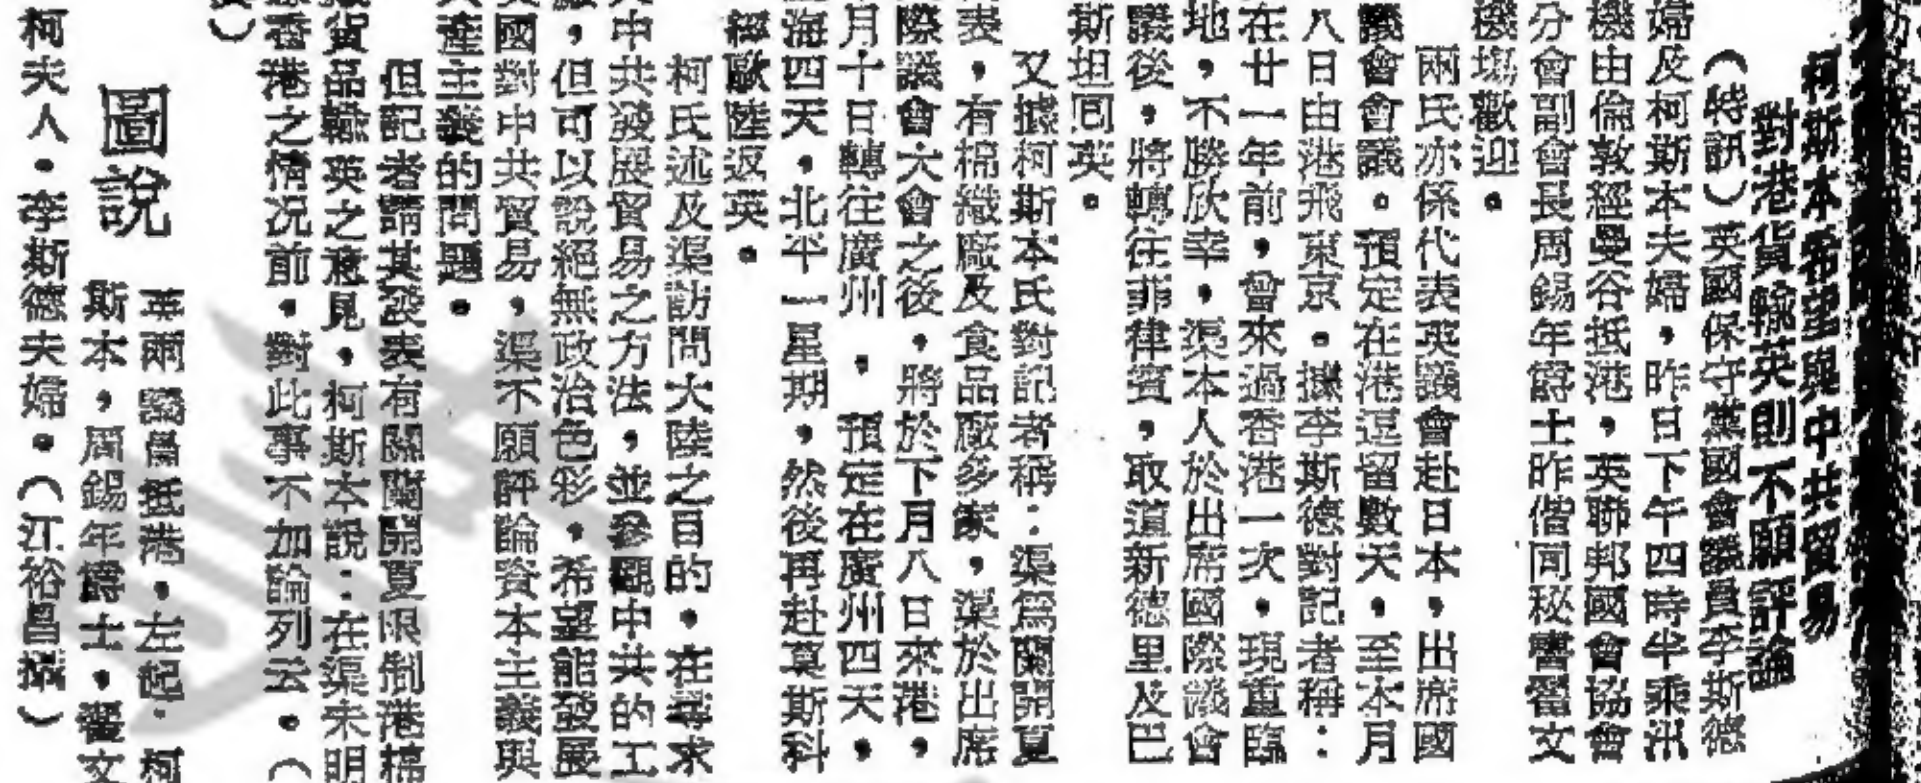 柯斯本希望與中共貿易
對港貨輸英則不願評論
(特訊)英國保守黨國會議員李斯德
婦及柯斯本夫婦,昨日下午四時半乘汎
機由倫敦經曼谷抵港,英聯邦國會協會
分會副會長周錫年爵士昨偕同秘書翟文
機塲歡迎。
兩氏亦係代表英議會赴日本,出席國
議會會議。預定在港逗留數天,至本月
八日由港飛東京。據李斯德對記者稱:
在廿一年前,曾來過香港一次,現重臨
地,不勝欣幸,渠本人於出席國際議會
議後,將轉往菲律賓,取道新德里及巴
斯坦囘英。
又據柯斯本氏對記者稱:渠爲蘭開夏
表,有棉織廠及食品廠多家,渠於出席
際議會大會之後,將於下月八日來港,
月十日轉往廣州,預定在廣州四天,
海四天,北平一星期,然後再赴莫斯科
經歐陸返英。
柯氏述及渠訪問大陸之目的,在尋求
中共發展貿易之方法,並參觀中共的工
廠,但可以說絕無政治色彩,希望能發展
國對中共貿易,渠不願評論資本主義與
產主義的問題。
但記者請其發表有關蘭開夏限制港棉
貨品輸英之意見,柯斯本說:在渠未明
香港之情況前,對此事不加論列云。(
)
圖說
英兩議員抵港,左起:柯
斯本,周錫年爵士,翟文
柯夫人,李斯德夫婦。(江裕昌攝)